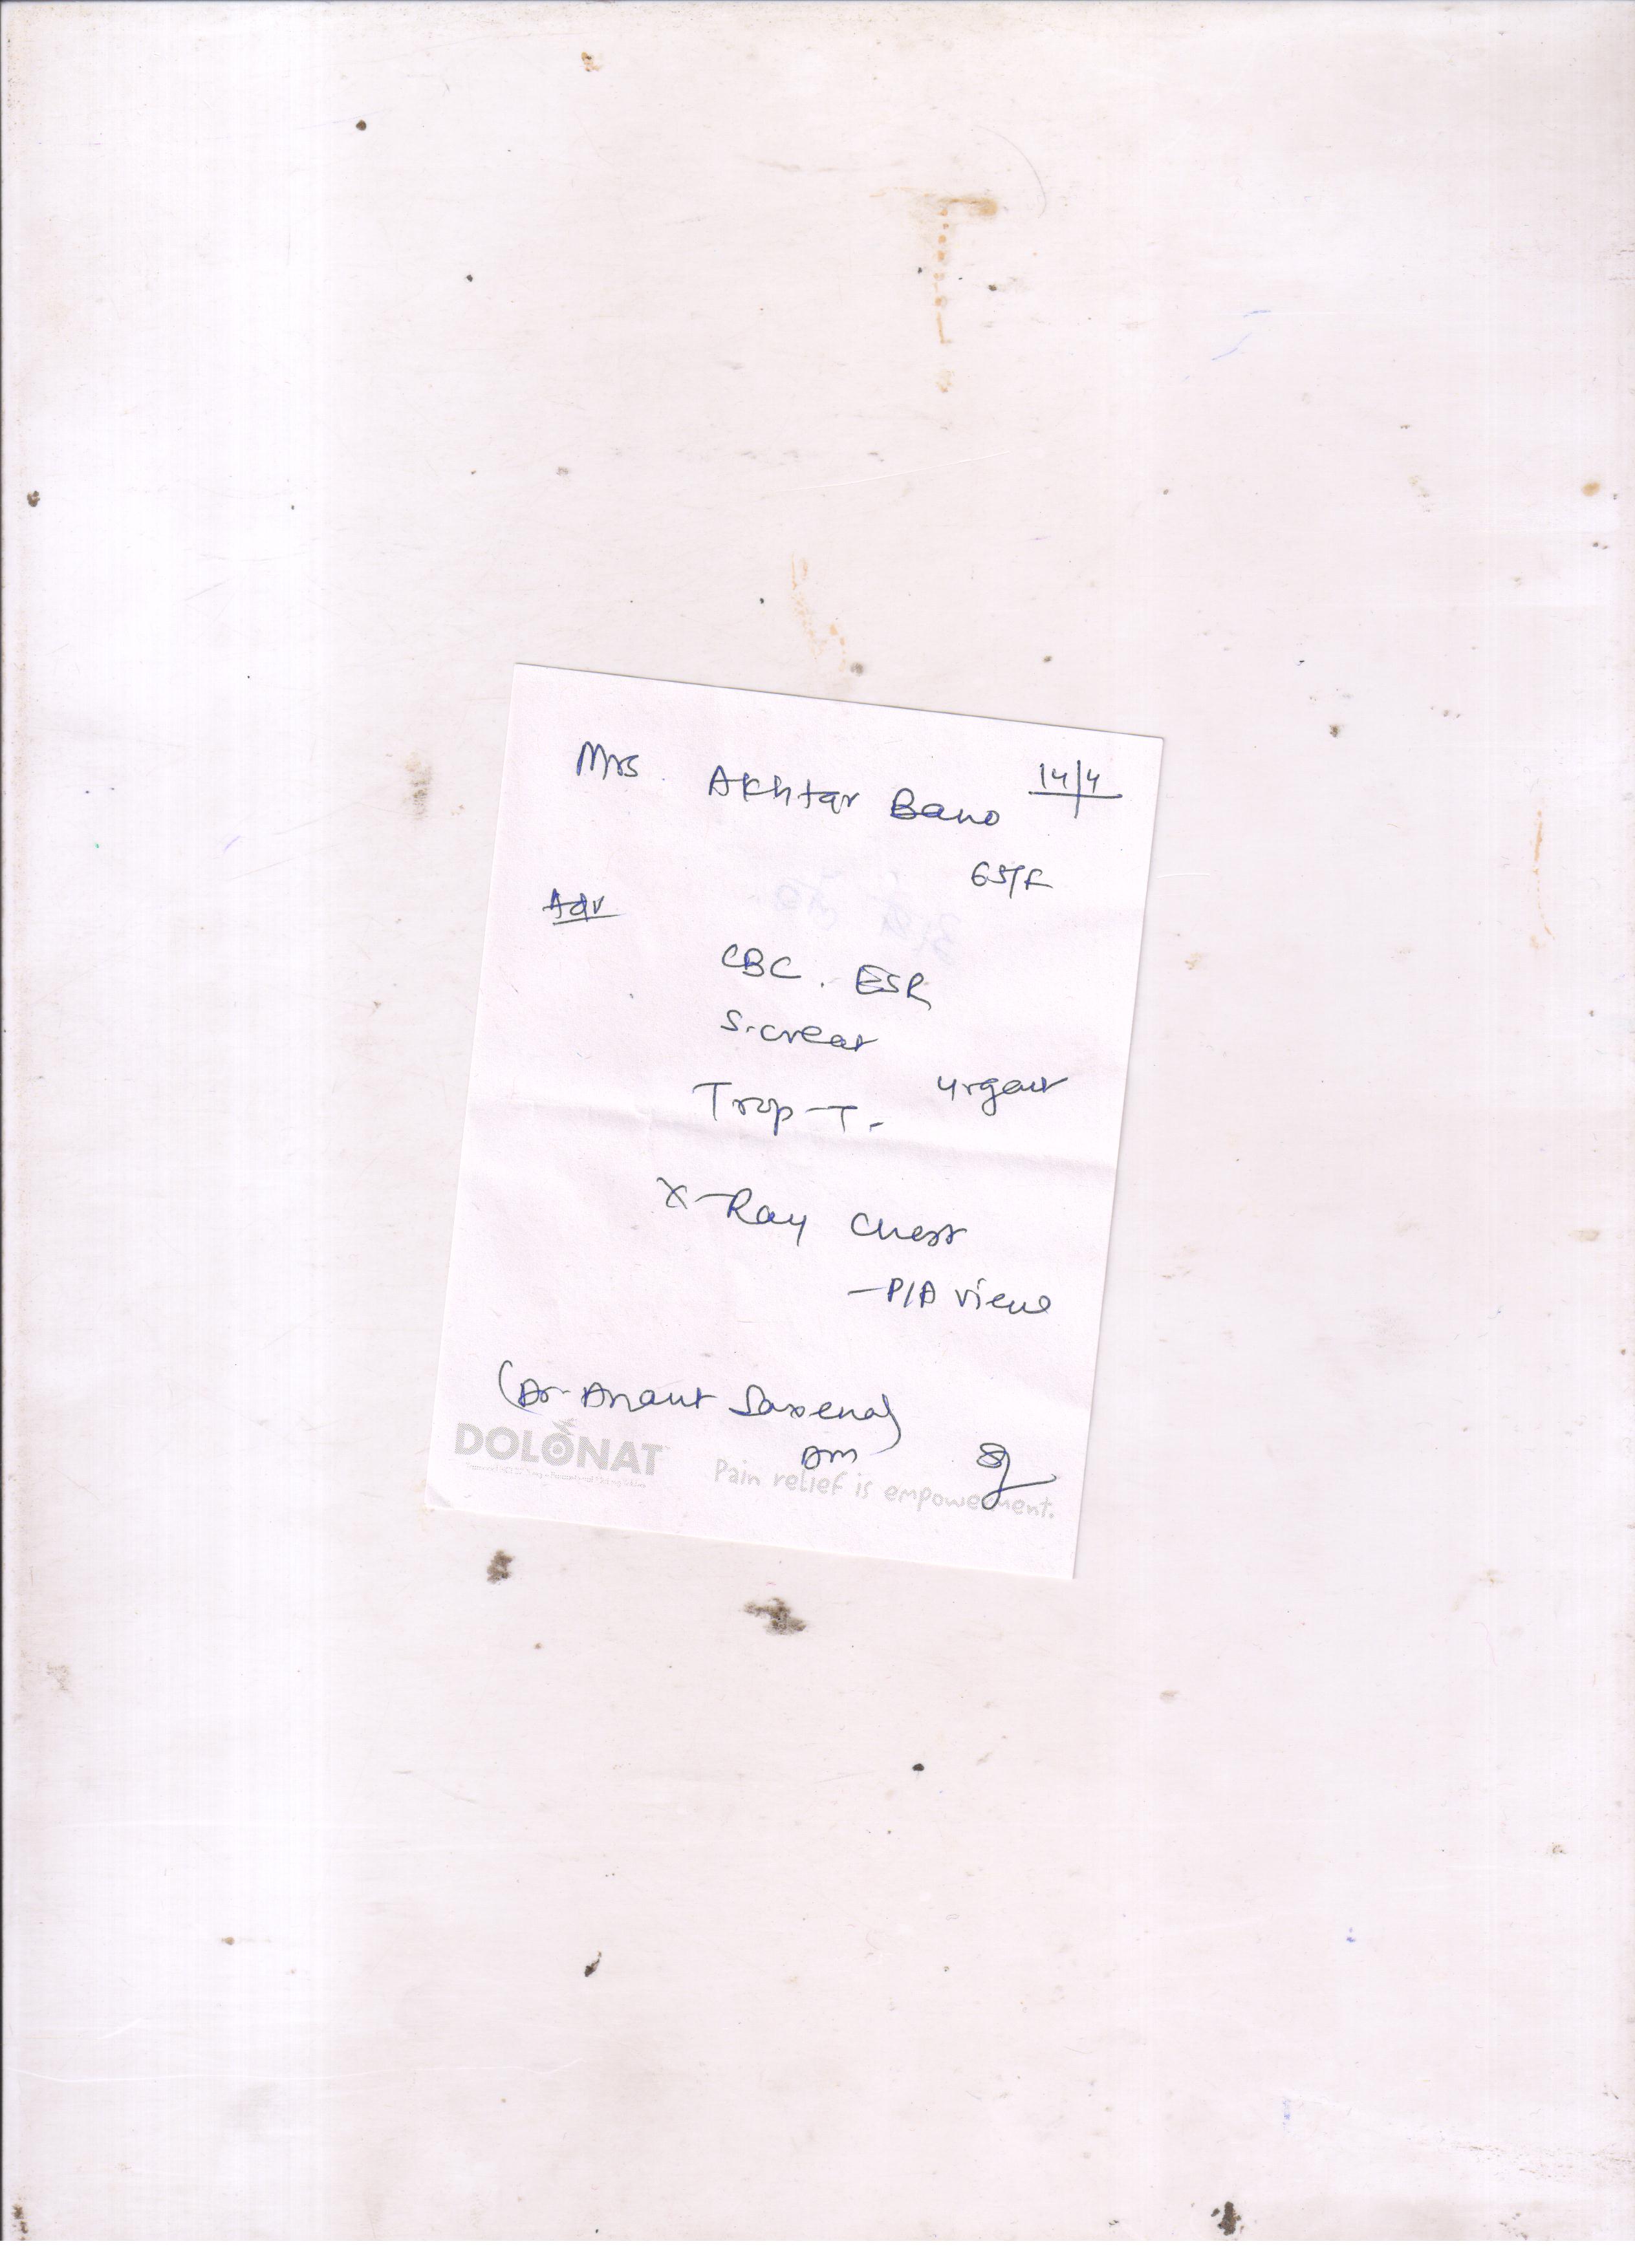 Mrs. Akhtar Bano 14/4
65/F
Adv
CBC. ESR
S. creat
Trop-T. urgent
X-Ray Chest
- P/A view
(Dr. Anant Saxena)
DM
DOLONAT
Pain relief is empowerment.